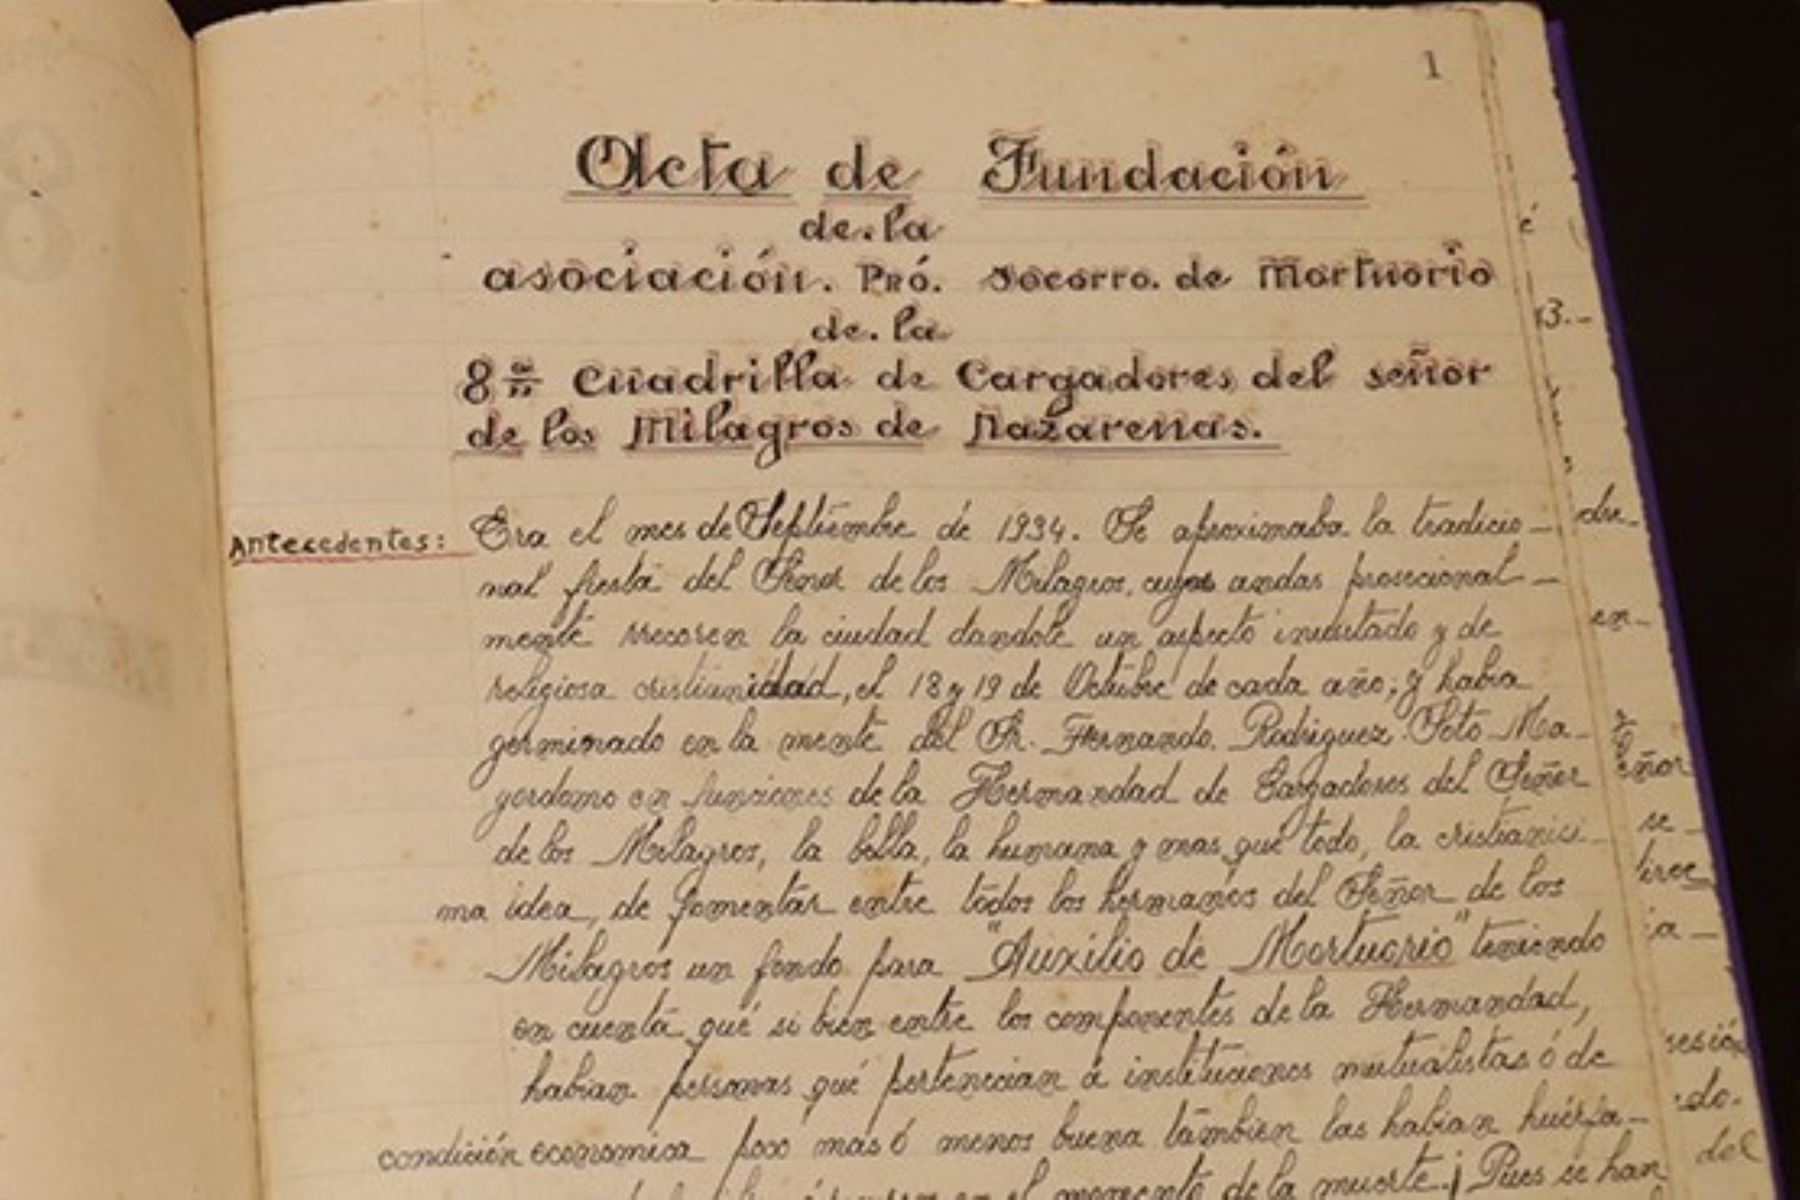 1
Acta de Fundación
de.la
asociación. Pró. Socorro. de Mortuorio
de.la
8ª Cuadrilla de Cargadores del señor
de los Milagros de Nazarenas.
Antecedentes: Era el mes de Septiembre de 1934. Se aproximaba la tradicio-
nal fiesta del Señor de los Milagros, cuyas andas prosecional-
mente rrecoren la ciudad dandole un aspecto inusitado y de
religiosa cristianidad, el 18 y 19 de Octubre de cada año; y habia
germinado en la mente del Sr. Fernando. Rodriguez Soto Ma-
yordomo en funciones de la Hermandad de Cargadores del Señor
de los Milagros, la bella, la humana y mas qué todo, la cristianici-
ma idea, de fomentar entre todos los hermanos del Señor de los
Milagros un fondo para "Auxilio de Mortuorio" teniendo
en cuenta qué si bien entre los componentes de la Hermandad,
habian personas qué pertenecian á instituciones mutualistas ó de
condición economica poco mas ó menos buena tambien las habian huérfa-
en el momento de la muerte.¡ Pues se han
é
3.-
en-
eñor
se-
ia-
sesión
do.
del